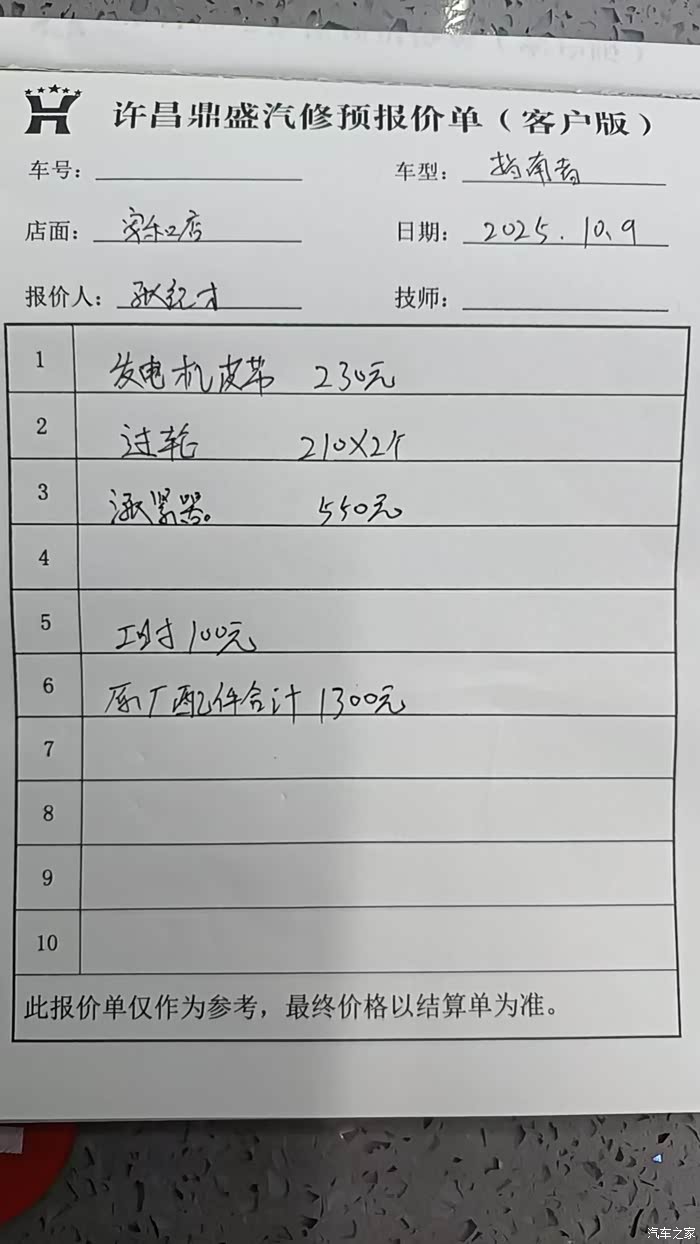 许昌鼎盛汽修预报价单（客户版）
车号： 车型：指南者
店面： 日期：2025.10.9
报价人：张纪才 技师：
1 发电机皮带 230元
2 过轮 210X2个
3 涨紧器。 550元
4
5 工时100元
6 原厂配件合计 1300元
7
8
9
10
此报价单仅作为参考，最终价格以结算单为准。
汽车之家